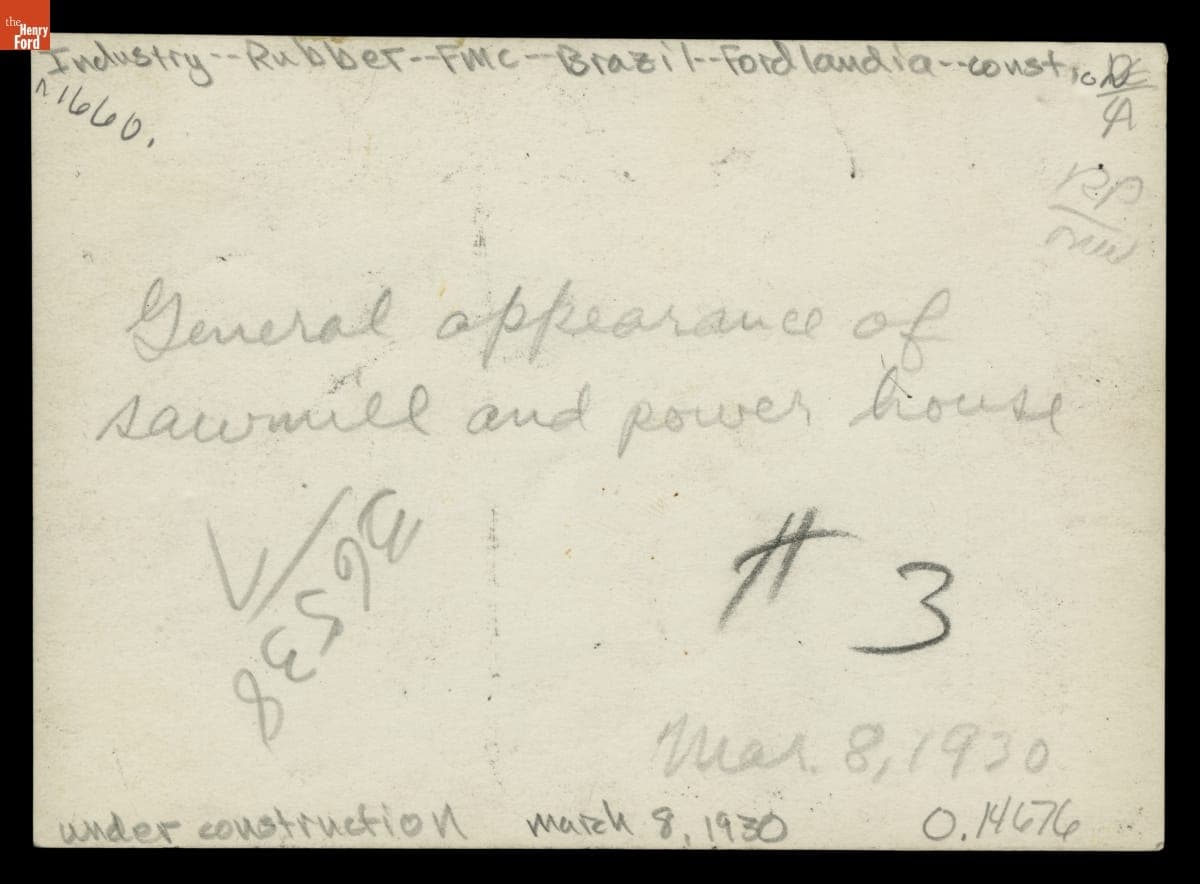 the
Henry
Ford
Industry--Rubber--FMC--Brazil--Fordlandia--const.
1660.
A
General appearance of
sawmill and power house
# 3
Mar. 8, 1930
under construction march 8, 1930 0.14676